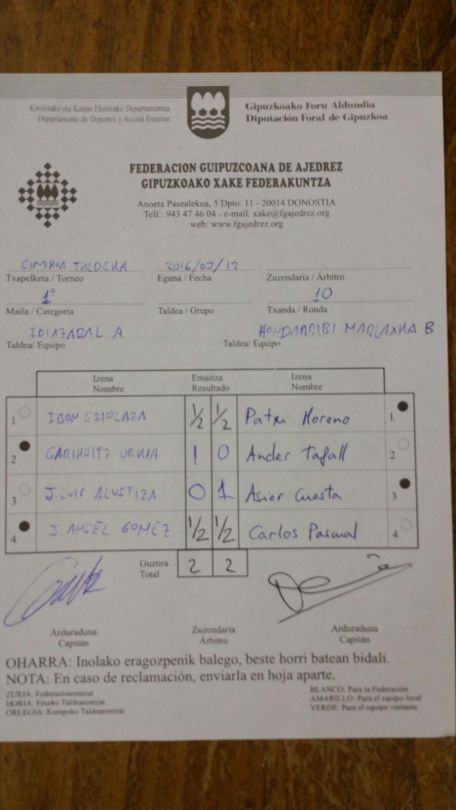 Kiroletako eta Kanpo Ekintzako Departamentua
Departamento de Deportes y Acción Exterior
Gipuzkoako Foru Aldundia
Diputación Foral de Gipuzkoa
FEDERACION GUIPUZCOANA DE AJEDREZ
GIPUZKOAKO XAKE FEDERAKUNTZA
Anoeta Pasealekua, 5 Dpto. 11 - 20014 DONOSTIA
Telf.: 943 47 46 04 - e-mail: xake@fgajedrez.org
web: www.fgajedrez.org
TALDEKA 2016/03/12
Txapelketa / Torneo Eguna / Fecha Zuzendaria / Árbitro
1ª 10
Maila / Categoria Taldea / Grupo Txanda / Ronda
IDIAZABAL A HONDARRIBI MARLAXKA B
Taldea/ Equipo Taldea/ Equipo
Izena Emaitza Izena
Nombre Resultado Nombre
1 IBON EZIOLAZA 1/2 1/2 Patxi Moreno 1
2 GARIKOITZ URKIA 1 0 Ander Tafall 2
3 J. LUIS ALUSTIZA 0 1 Asier Cuesta 3
4 J. ANGEL GOMEZ 1/2 1/2 Carlos Pascual 4
Guztira
Total 2 2
Arduraduna Zuzendaria Arduraduna
Capitán Árbitro Capitán
OHARRA: Inolako eragozpenik balego, beste horri batean bidali.
NOTA: En caso de reclamación, enviarla en hoja aparte.
ZURIA: Federazioarentzat BLANCO: Para la Federación
HORIA: Etxeko Taldearentzat AMARILLO: Para el equipo local
ORLEGIA: Kanpoko Taldearentzat VERDE: Para el equipo visitante